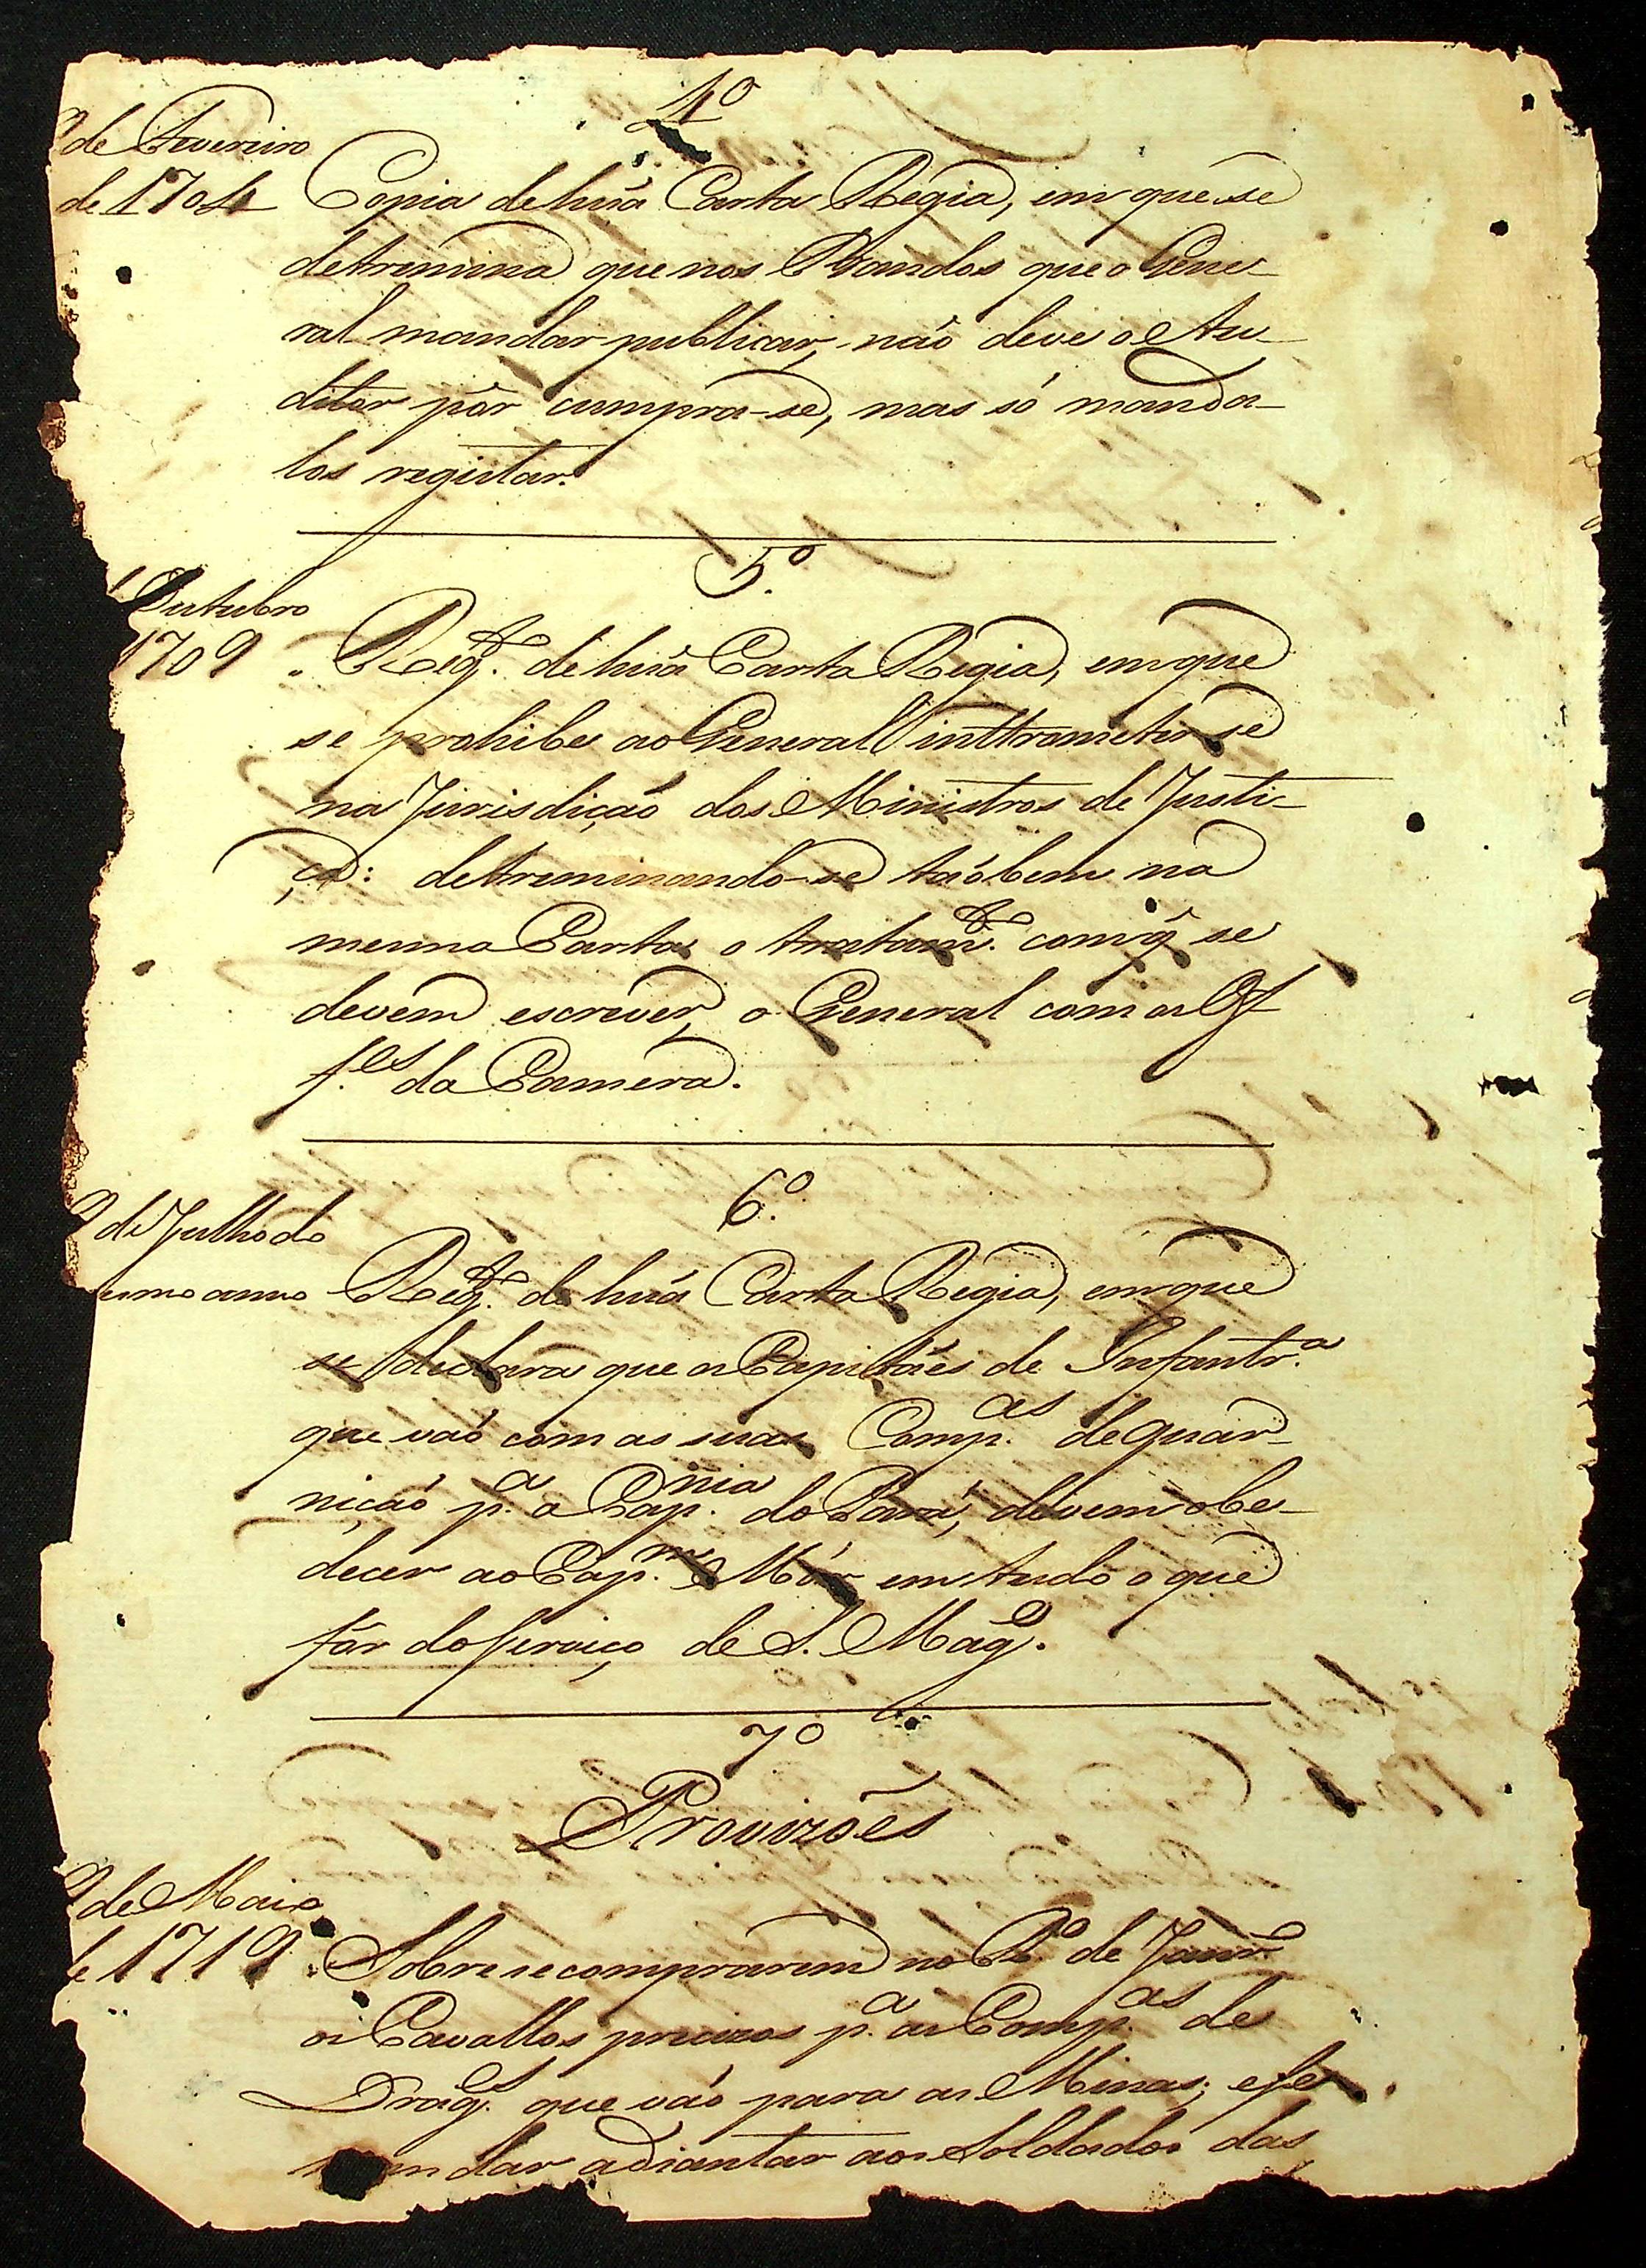 4º
de Fevereiro
de 1704 Copia de huã Carta Regia, em que se
detremina que nos Bandos que o Gene-
ral mandar publicar, não deve o Au-
ditor pôr cumpra-se, mas só manda-
los registar.
5º.
Outubro
1709 Reg.to de huã Carta Regia, em que
se prohibe ao General inttrometer se
na Jurisdição dos Ministros de Justi-
ça: detreminando-se taõbem na
mesma Carta o tratam.to com q̃ se
devem escrever, o General com os Of-
f.es da Camera.
6º.
de Julho do
smo anno Reg.to de huã Carta Regia, em que
se declara que os Capitães de Infantr.a
que vaõ com as suas Comp.as de guar-
niçaõ p.a a Cap.nia do Pará, devem obe-
decer ao Cap.m Mór em tudo o que
fôr do serviço de S. Mag.e
7º
Provizões
de Maio
de 1719 Sobre se comprarem no R.o de Janr.o
os Cavallos precizos p.a as Comp.as de
Drag.s que vaõ para as Minas; e se
mandar adiantar aos Soldados das